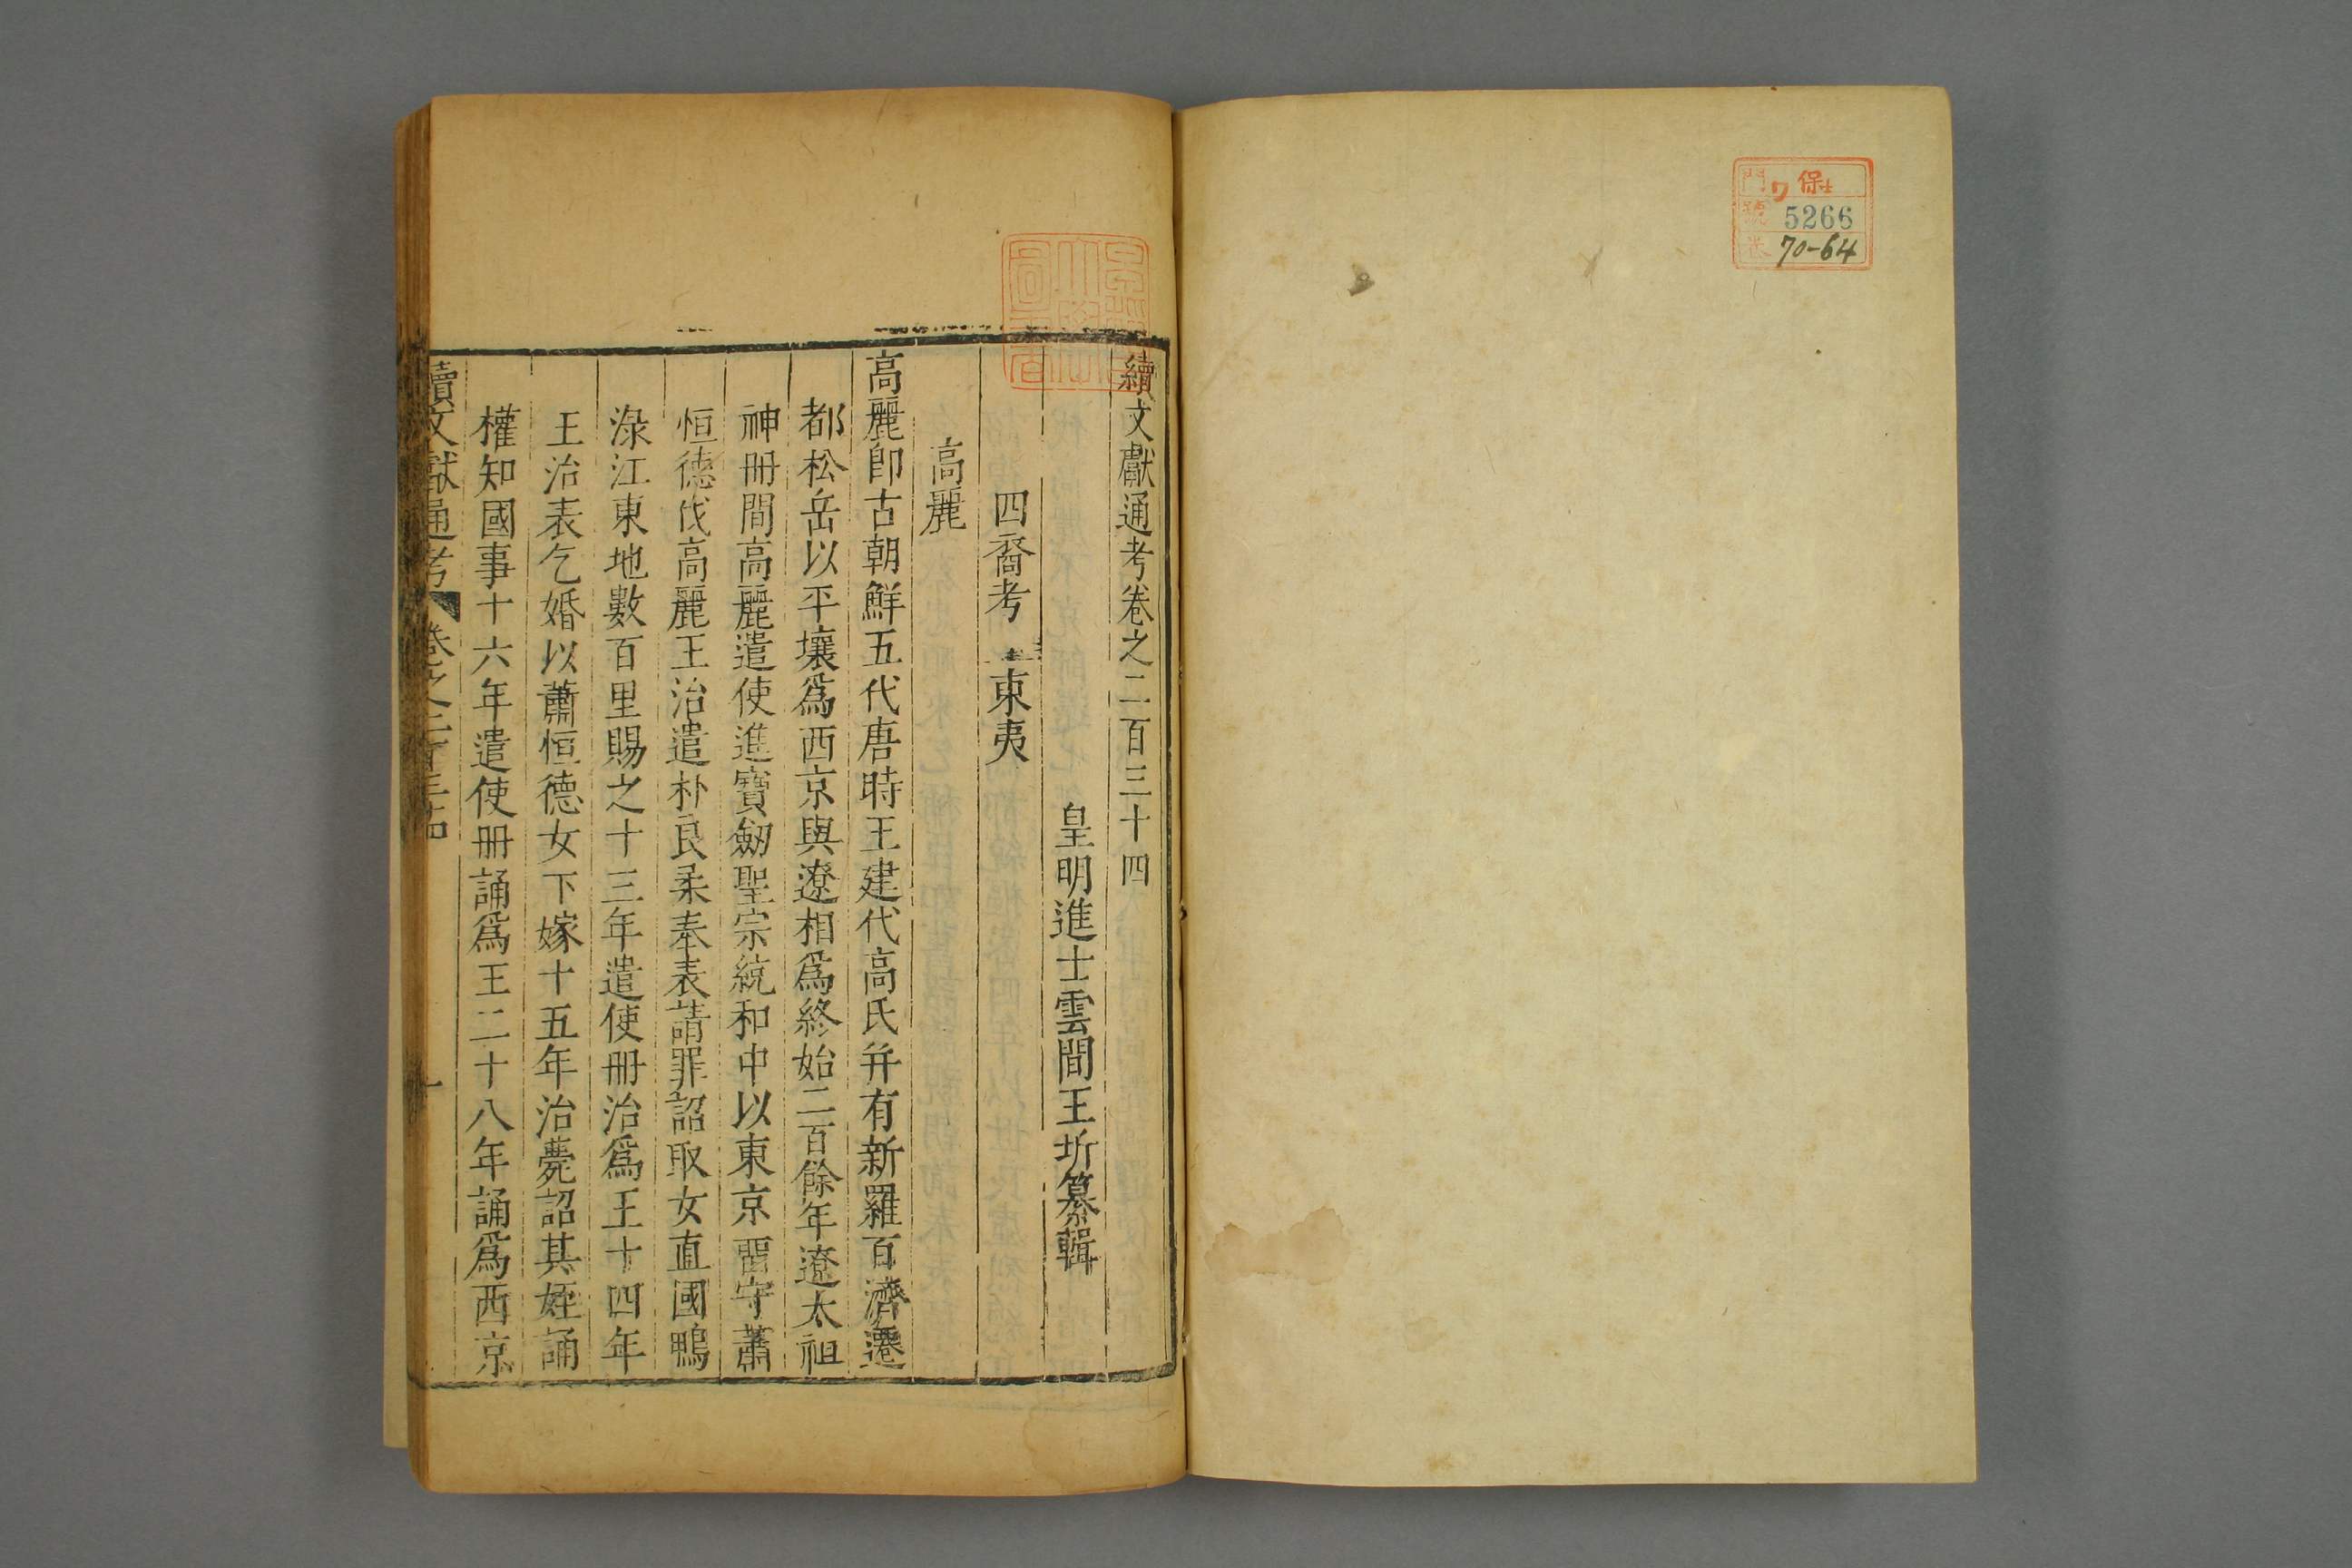 門 ワ 保士
號 5266
巻 70-64
續文獻通考卷之二百三十四
皇明進士雲間王圻纂輯
四裔考 東夷
高麗
高麗即古朝鮮五代唐時王建代高氏并有新羅百濟遷
都松岳以平壤爲西京與遼相爲終始二百餘年遼太祖
神册間高麗遣使進寶劒聖宗統和中以東京畱守蕭
恒德伐高麗王治遣朴良柔奉表請罪詔取女直國鴨
淥江東地數百里賜之十三年遣使册治爲王十四年
王治表乞婚以蕭恒德女下嫁十五年治薨詔其姪誦
權知國事十六年遣使册誦爲王二十八年誦爲西京
續文獻通考 卷之二百三十四 一